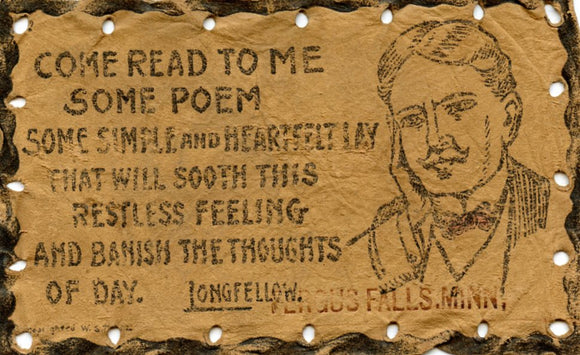 COME READ TO ME
SOME POEM
SOME SIMPLE AND HEARTFELT LAY
THAT WILL SOOTH THIS
RESTLESS FEELING
AND BANISH THE THOUGHTS
OF DAY. LONGFELLOW.
FERGUS FALLS, MINN.